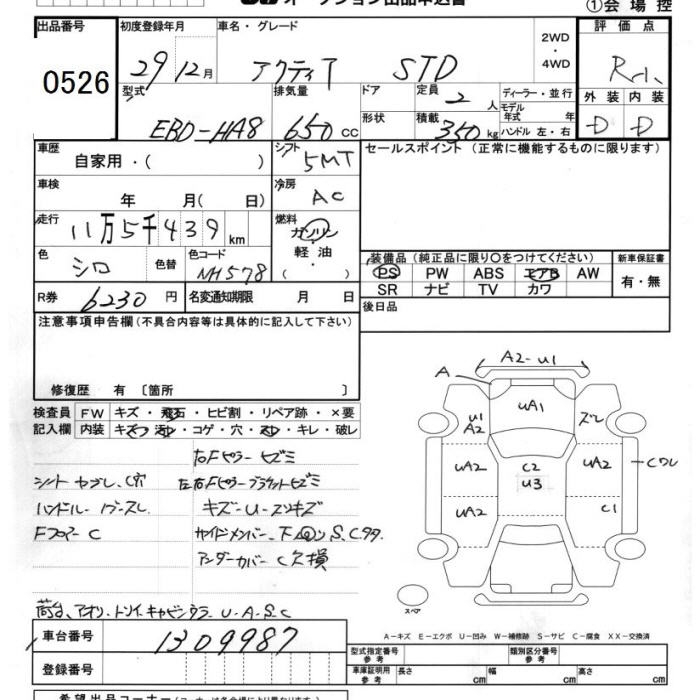 オークション出品申込書
①会場控
出品番号
0526
初度登録年月
29 12月
車名・グレード
アクティ STD
2WD
・
4WD
評価点
R
外装 内装
D D
型式
EBD-HA8
排気量
650 cc
ドア
形状
定員
2人
積載
350 kg
ディーラー・並行
モデル年式 年
ハンドル 左・右
車歴
自家用・( )
シフト
5MT
セールスポイント(正常に機能するものに限ります)
車検
年 月( 日)
冷房
AC
走行
11万5千439 km
燃料
ガソリン
軽油
・( )
色
シロ
色替
色コード
NH578
装備品(純正品に限り〇をつけてください)
PS PW ABS エアB AW
SR ナビ TV カワ
新車保証書
有・無
R券
6230円
名変通知期限 月 日
後日品
注意事項申告欄(不具合内容等は具体的に記入して下さい)
修復歴 有 〔箇所 〕
検査員記入欄
FW キズ・飛石・ヒビ割・リペア跡・×要
内装 キズ・汚・コゲ・穴・・キレ・破レ
右Fピラー ヒズミ
シート ヤブレ、C穴
左右Fピラーブラケットヒズミ
ハンドル・ノブースレ
キズ-U-スリキズ
Fフロアー C
サイドメンバー、下回り S、C
アンダーカバー C欠損
荷台、アオリ・トリイ、キャビン U-A-S-C
A2-U1
A
UA1
U1
A2
ズレ
UA2
C2
U3
UA2
Cワレ
UA2
C1
スペア
A-キズ E-エクボ U-凹み W-補修跡 S-サビ C-腐食 XX-交換済
車台番号
1309987
登録番号
型式指定番号
参考
類別区分番号
参考
車庫証明用
参考
長さ cm
幅 cm
高さ cm
希望出品コーナー